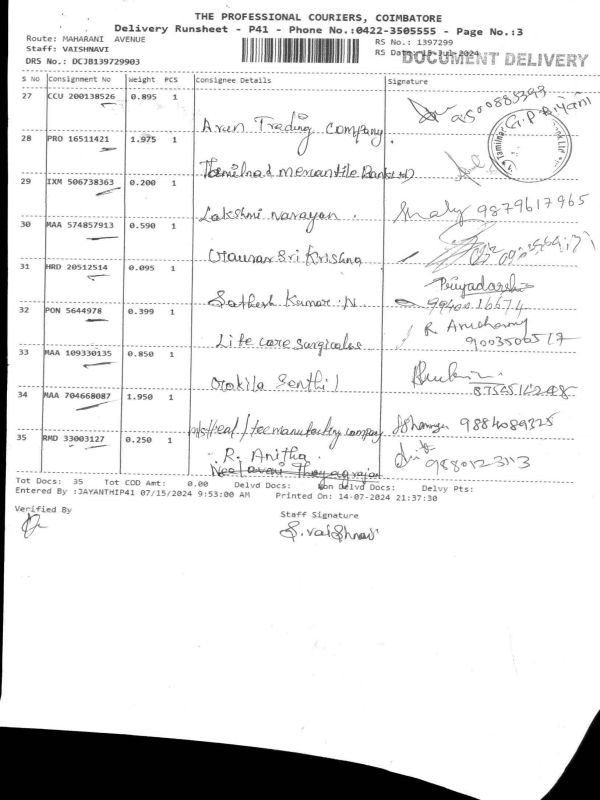 THE PROFESSIONAL COURIERS, COIMBATORE
Delivery Runsheet - P41 - Phone No.:0422-3505555 - Page No.:3
Route: MAHARANI AVENUE
RS No.: 1397299
Staff: VAISHNAVI
RS Date: 15-Jul-2024
DOCUMENT DELIVERY
DRS No.: DCJB139729903
S No Consignment No Weight PCS Consignee Details Signature
27 CCU 200138526 0.895 1 Arun Trading Company.
28 PRO 16511421 1.975 1 Tamilnad mercantile Bank LTD
29 IXM 506738363 0.200 1 Lakshmi narayan. 9879617965
30 MAA 574857913 0.590 1 Sri Krishna
31 HRD 20512514 0.095 1 Sathesh Kumar.N Priyadarshi
9940016674
32 PON 5644978 0.399 1 Life care surgicalas R
9003506517
33 MAA 109330135 0.850 1 Senthil
34 MAA 704668087 1.950 1 manufacturing company 9884089325
35 RMD 33003127 0.250 1 R. Anitha. 9880123113
Tot Docs: 35 Tot COD Amt: 0.00 Delvd Docs: Non Delvd Docs: Delvy Pts:
Entered By :JAYANTHIP41 07/15/2024 9:53:00 AM Printed On: 14-07-2024 21:37:30
Verified By
Staff Signature
S. vaiShnavi